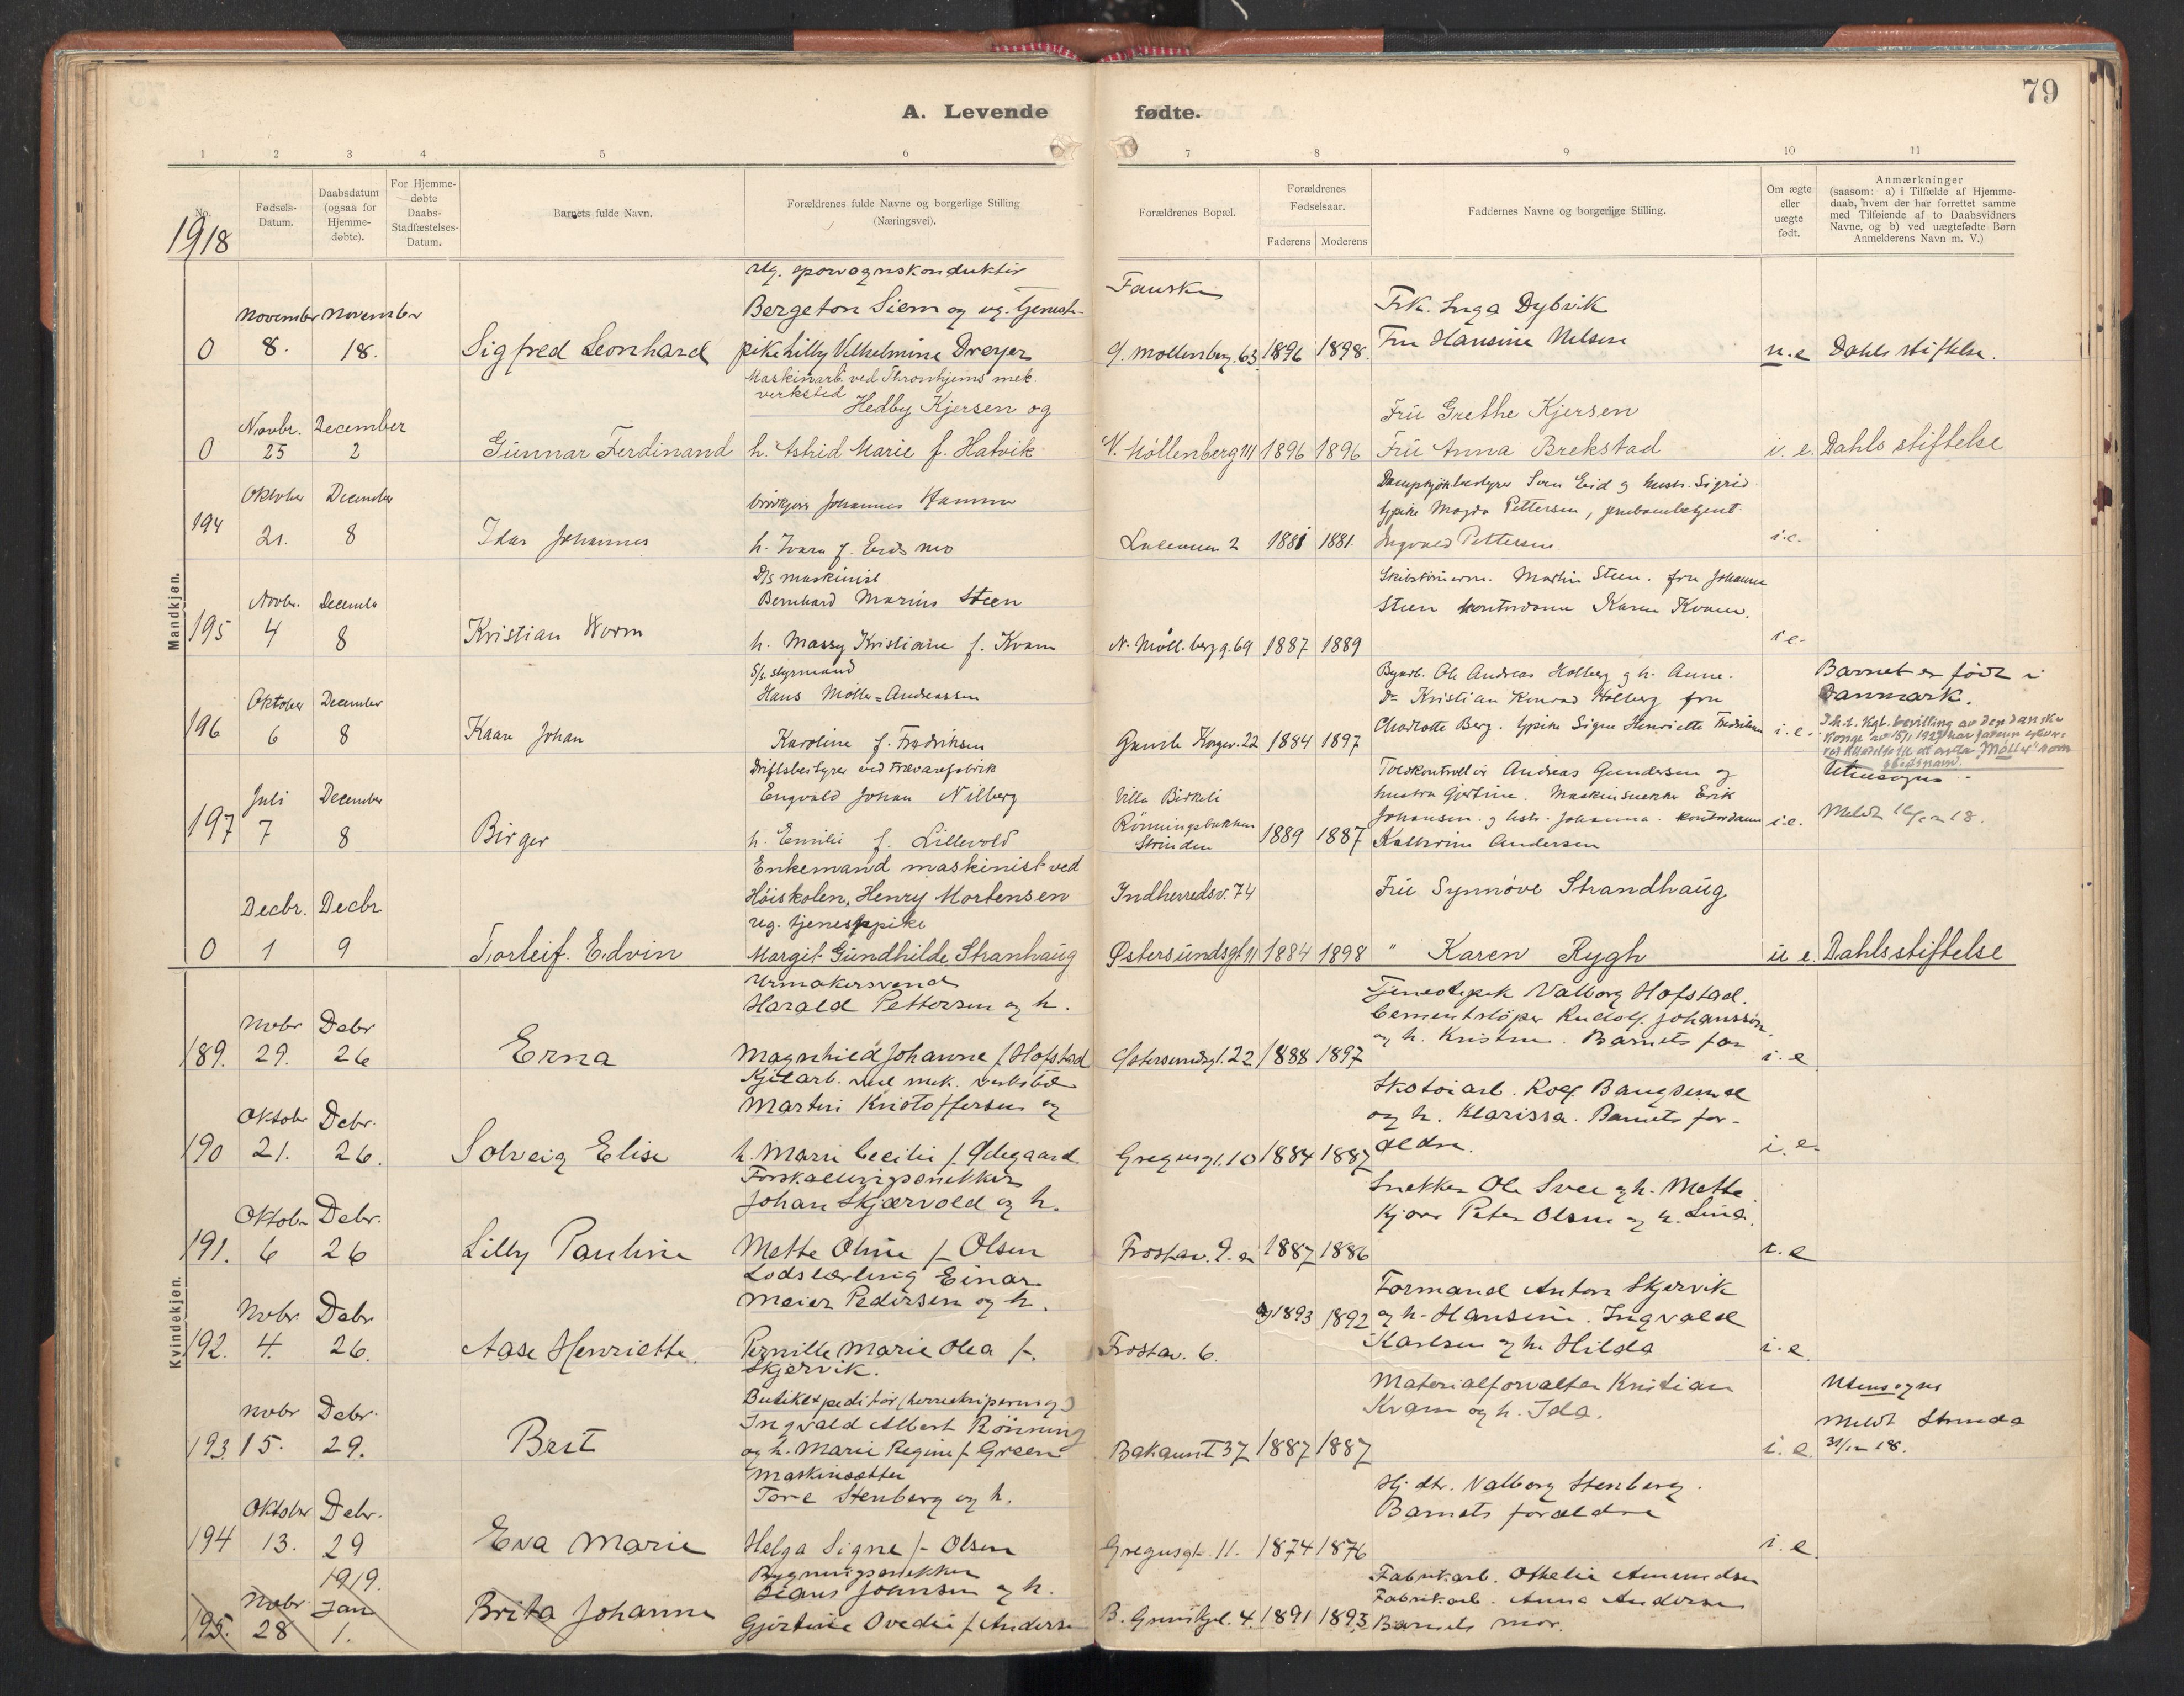 79
A. Levende fødte.
1 2 3 4 5 6 7 8 9 10 11
No.
Fødsels-Datum.
Daabsdatum (ogsaa for Hjemme-døbte).
For Hjemme-døbte Daabs-Stadfæstelses-Datum.
Barnets fulde Navn.
Forældrenes fulde Navne og borgerlige Stilling (Næringsvei).
Forældrenes Bopæl.
Forældrenes Fødselsaar.
Faderens Moderens
Faddernes Navne og borgerlige Stilling.
Om ægte eller uægte født.
Anmærkninger
(saasom: a) i Tilfælde af Hjemme-
daab, hvem der har forrettet samme
med Tilføiende af to Daabsvidners
Navne, og b) ved uægtefødte Børn
Anmelderens Navn m. V.)
1918
Mandkjøn.
ug. sporvognskonduktør
Fauske
November November Bergeton Siem og ug. tjeneste- Frk. Inga Dybvik
0 8. 18. Sigfred Leonhard pike Lilly Vilhelmine Dreyer Ø. Møllenberg. 63 1896 1898. Fru Hansine Nelsen u.e Dahls stiftelse.
Maskinarb. ved Thronhjems mek.
verksted
Hedby Kjersen og Frü Grethe Kjersen
Novbr. December
0 25 2 Günnar Ferdinand h. Astrid Marie f. Hatvik 1896 1896 Frü Anna Brekstad i. e. Dahls stiftelse
Oktober December Johannes Hammer Sven Eid og hustr. Sigrid
Magda Pettersen,
194 21. 8 Idar Johannes 2 1881 1881. Ingvald Pettersen i.e.
D/s maskinist
Novbr. December Bernhard Marius Steen Martin Steen. fru Johanna
Steen kontordame Karen Kvam.
195 4 8 Kristian Worm h. Massy Kristiane f. Kvam N. Møll.berg g. 69 1887 1889 i e.
S/s. styrmand
Hans Møller=Andreassen Ole Andreas Holberg og h. Anne. Barnet er født i
Oktober December Kristian Konrad Holberg fru Danmark.
196 6 8 Kaare Johan Karoline f. Fredriksen Gamle Kongev. 22 1884 1897 Charlotte Berg. Signe Henriette Fredriksen i. e.
Driftsbestyrer ved Trævarefabrik Toldkontrollør Andreas Gundersen og Utensogns
Juli December Engvald Johan Nilberg Villa Birkeli hustru Gjertine. Maskinsnekker Erik
197 7 8 Birger h. Emilie f. Lillevold Rønningsbakken Strinden 1889 1887 Johansen og hstr. Johanna. kontordame i.e.
Kathrine Andersen
Enkemand maskinist ved
Decbr. Decbr Høiskolen, Henry Mortensen Indherredsv. 74 Frü Synnøve Strandhaüg
ug. tjenestepike
0 1 9 Torleif. Edvin Margit Gündhilde Stranhaüg Østersündsgt 11 1884 1898 " Karen Rygh ü e. Dahls stiftelse
Kvindekjøn.
Urmakersvend
Harald Pettersen og h. Valborg Hofstad.
Nvbr Debr Cementstøper Rudolf Johanssøn
189. 29. 26 Erna Magnhild Johanne f. Hofstad Østersundsgt. 22 1888 1897 og h. Kristine. Barnets far i. e
Kjelarb. ved mek. verksted Skotøiarb. Rolf Bangsund
Oktobr Debr. Martin Kristoffersen og og h. Klarissa. Barnets for-
190 21. 26. Solveig Elise h. Marie Cecilie f. Ødegaard Gregusgt. 10 1884 1887 ældre. i. e.
Forskallingssnekker
Oktobr Debr. Johan Skjærvold og h. Snekker Ole Svee og h. Mette.
Peter Olsen og h. Lina.
191. 6 26 Lilly Pauline Mette Oline f. Olsen 1887 1886 i. e
Lodslærling Einar Formand Anton Skjervik
Nvbr Debr Meier Pedersen og h. 1893 1892 og h. Hansine. Ingvald
192. 4. 26. Aase Henriette. Pernille Marie Olea f. Frostav. 6. Karlsen og h. Hilda i. e
Skjervik.
Butikekspeditør (herreekipering) Materialforvalter Kristian Utensogns
Nvbr Debr. Ingvald Albert Rønning Kvam og h. Ida. Meldt Strinda
193. 15. 29. Brit og h. Marie Regine f. Green Bakaunet 37 1887 1887 i. e. 31/12 18.
Maskinsetter
Oktobr Debr. Tore Stenberg og h. Hj. dtr. Valborg Stenberg.
194 13. 29 Eva Marie Helga Signe f. Olsen Gregusgt. 11. 1874 1876 Barnets forældre i. e.
1919. Bygningssnekker Fabrikarb. Othelie Amundsen
Nvbr Jan Hans Johnsen og h. Fabrikarb. Anna Andersen
195. 28 1. Brita Johanne Gjertine Ovedie f. Andersen 4. 1891 1893 Barnets mor.